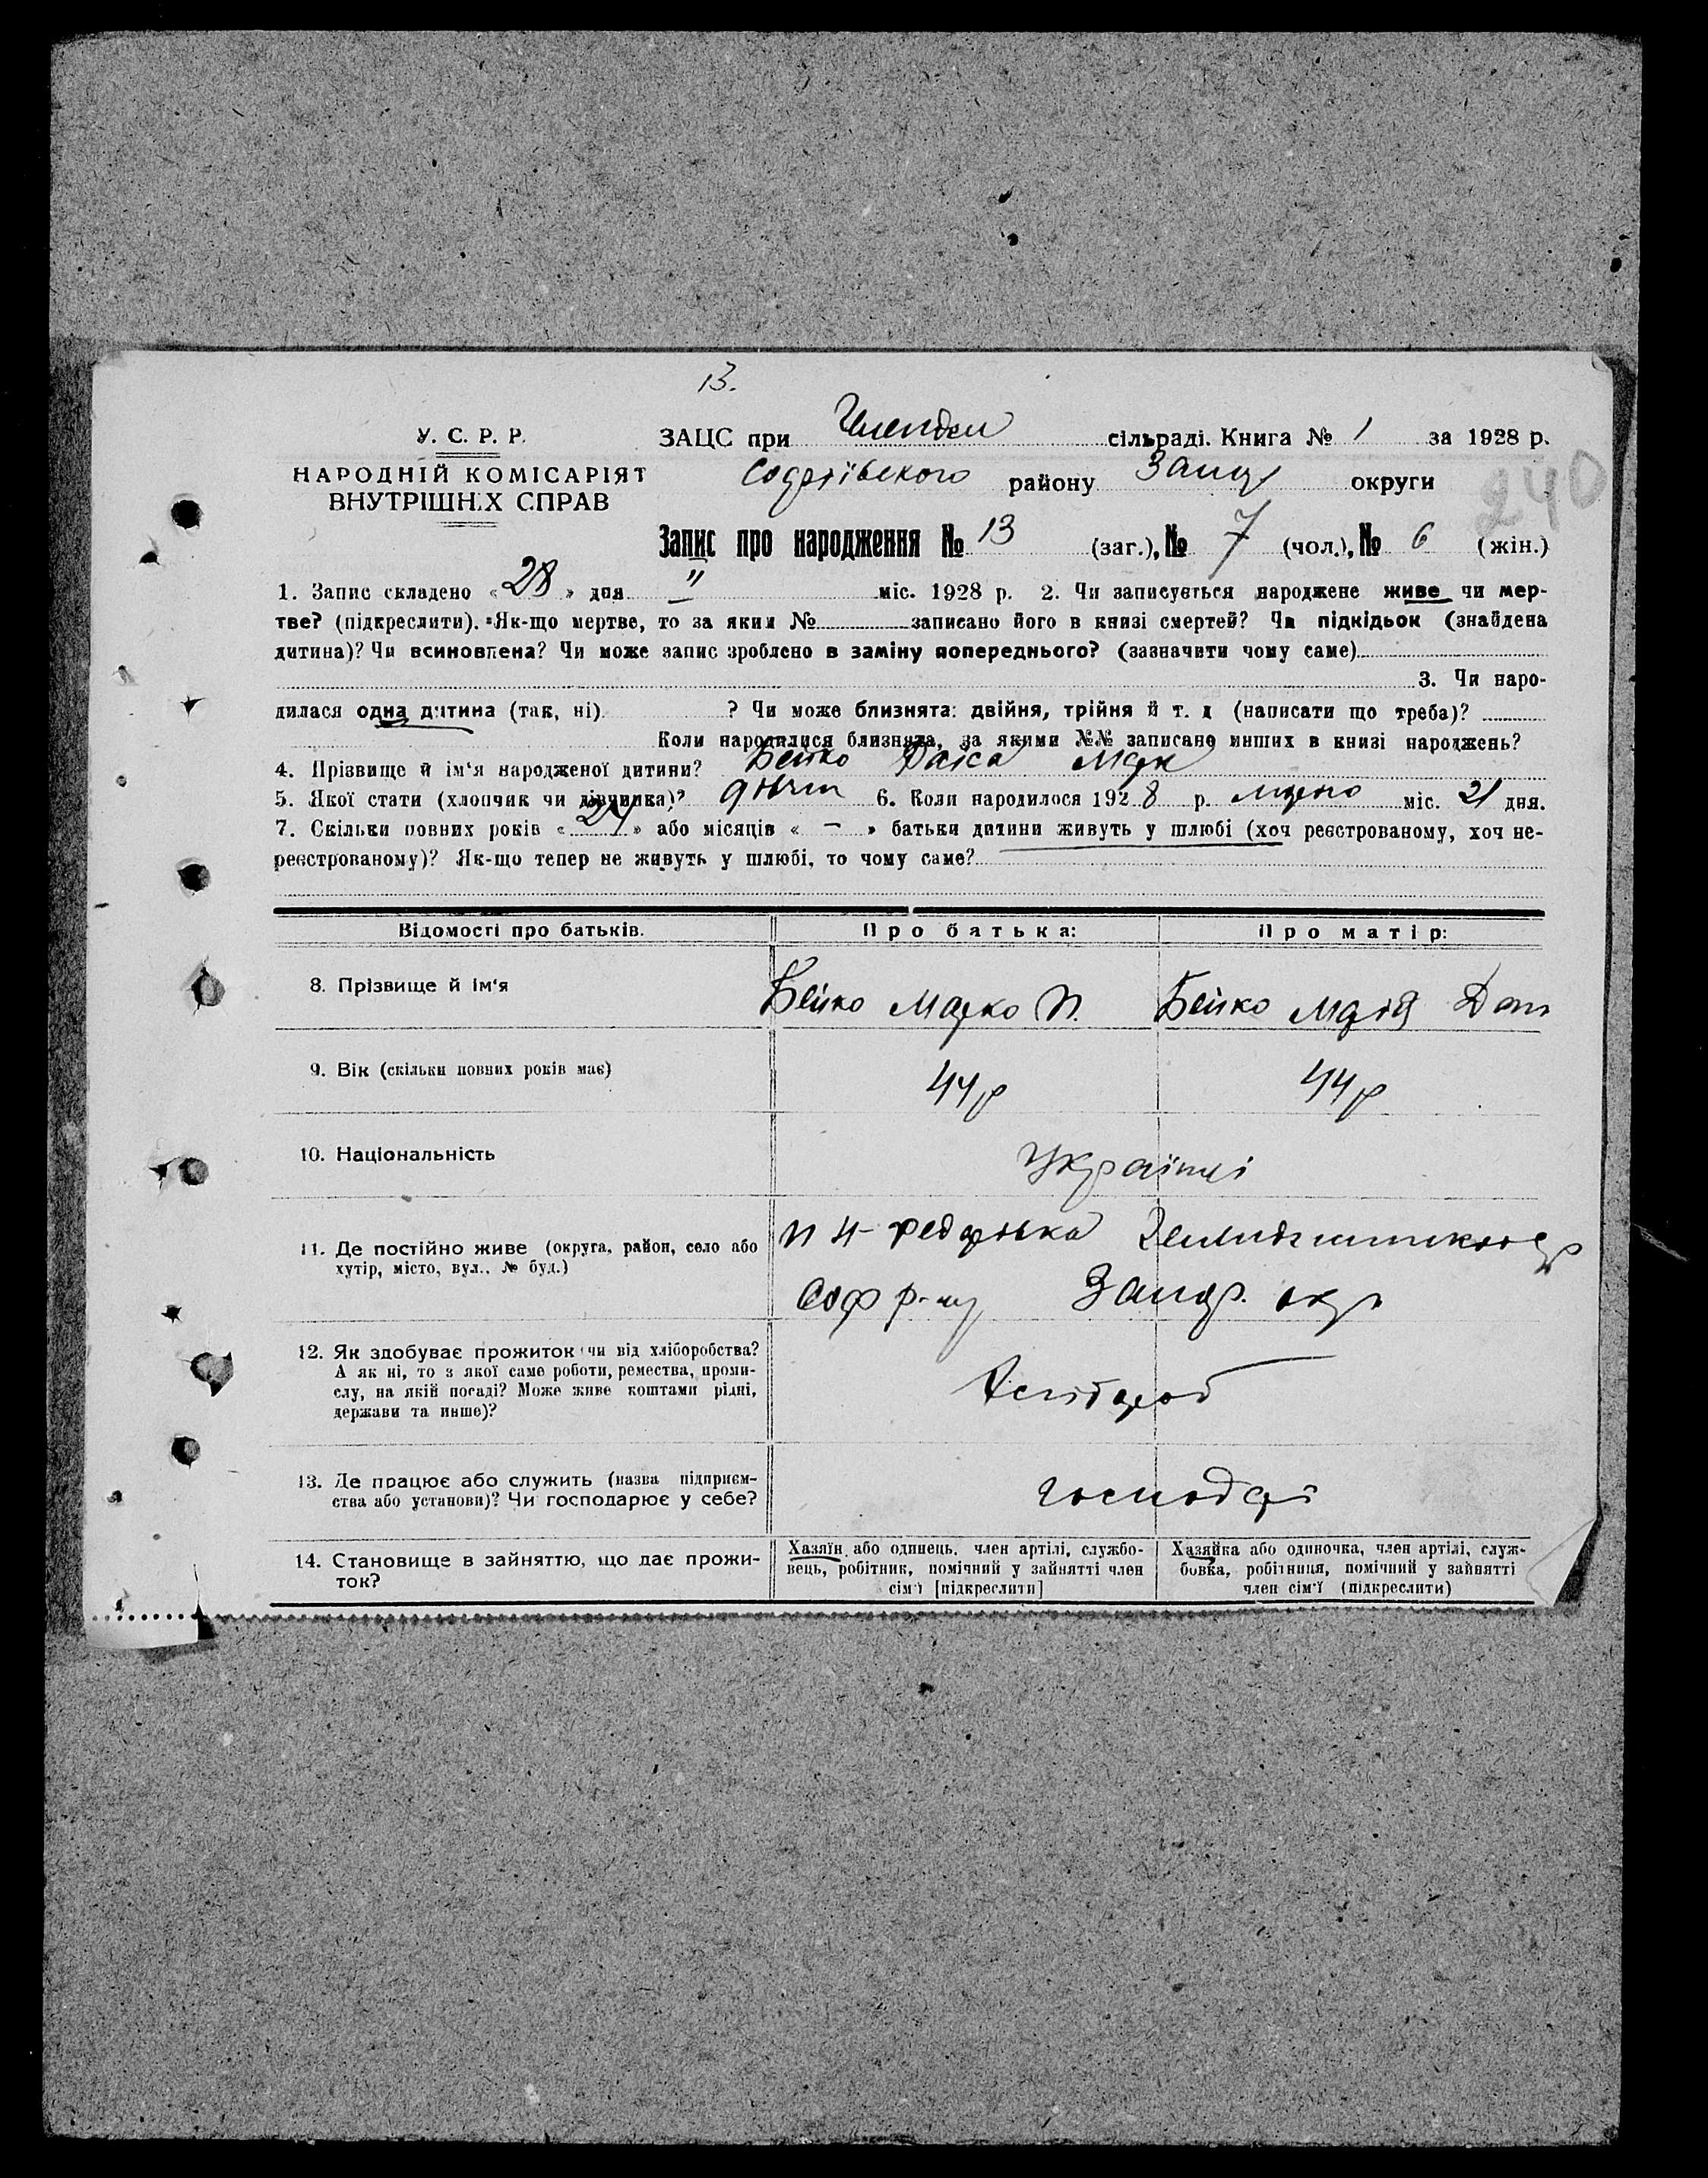 13.
У. С. Р. Р.
НАРОДНІЙ КОМІСАРІЯТ
ВНУТРІШНІХ СПРАВ
ЗАЦС при сільраді. Книга № 1 за 1928 р.
району округи
240
Запис про народження № 13 (заг.), № 7 (чол.), № 6 (жін.)
1. Запис складено « 28 » дня II міс. 1928 р. 2. Чи записується народжене живе чи мер-
тве? (підкреслити). Як-що мертве, то за яким № записано його в книзі смертей? Чи підкідьок (знайдена
дитина)? Чи всиновлена? Чи може запис зроблено в заміну попереднього? (зазначити чому саме)
3. Чи наро-
дилася одна дитина (так, ні) ? Чи може близнята: двійня, трійня й т. д (написати що треба)?
Коли народилися близнята, за якими №№ записано инших в книзі народжень?
4. Прізвище й ім'я народженої дитини? Бейко Раіса Марк
5. Якої стати (хлопчик чи дівчинка)? 6. Коли народилося 1928 р. міс. 21 дня.
7. Скільки повних років « 24 » або місяців « – » батьки дитини живуть у шлюбі (хоч реєстрованому, хоч не-
реєстрованому)? Як-що тепер не живуть у шлюбі, то чому саме?
Відомості про батьків. Про батька: Про матір:
8. Прізвище й ім'я Бейко Марко П. Бейко Марія Дан
9. Вік (скільки повних років має) 44 р 44 р
10. Національність Українці
11. Де постійно живе (округа, район, село або
хутір, місто, вул., № буд.)
Соф р-ну Запор. окр
12. Як здобуває прожиток чи від хліборобства?
А як ні, то з якої саме роботи, ремества, проми-
слу, на якій посаді? Може живе коштами рідні,
держави та инше)?
Хлібороб
13. Де працює або служить (назва підприєм-
ства або установи)? Чи господарює у себе?
господарі
14. Становище в зайняттю, що дає прожи-
ток?
Хазяїн або одинець, член артілі, службо-
вець, робітник, помічний у зайнятті член
сім'ї [підкреслити]
Хазяйка або одиночка, член артілі, служ-
бовка, робітниця, помічний у зайнятті
член сім'ї (підкреслити)